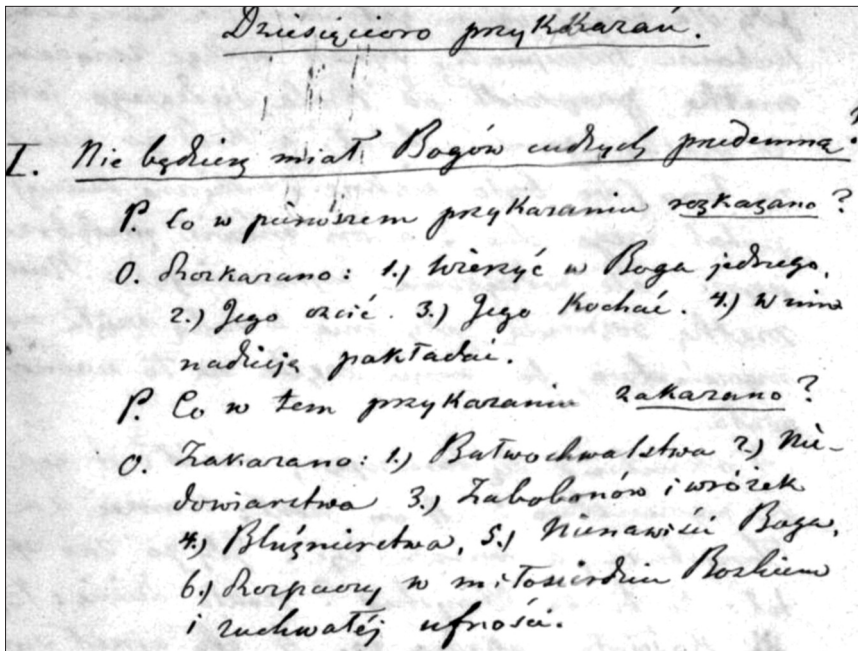 Dziesięcioro przykkazań.
I. Nie będziesz miał Bogów cudzych predemną!
P. Co w pierwszem przykazaniu rozkazano?
O. Rozkazano: 1.) Wierzyć w Boga jednego,
2.) Jego czcić. 3.) Jego Kochać. 4.) W nim
nadzieją pokładać.
P. Co w tem przykazaniu zakazano?
O. Zakazano: 1.) Bałwochwalstwa 2.) Nie-
dowiarstwa 3.) Zabobonów i wróżek
4.) Bluźnierstwa, 5.) Nienawiści Boga,
6.) Rozpaczy w miłosierdziu Boskiem
i zuchwałéj ufności.